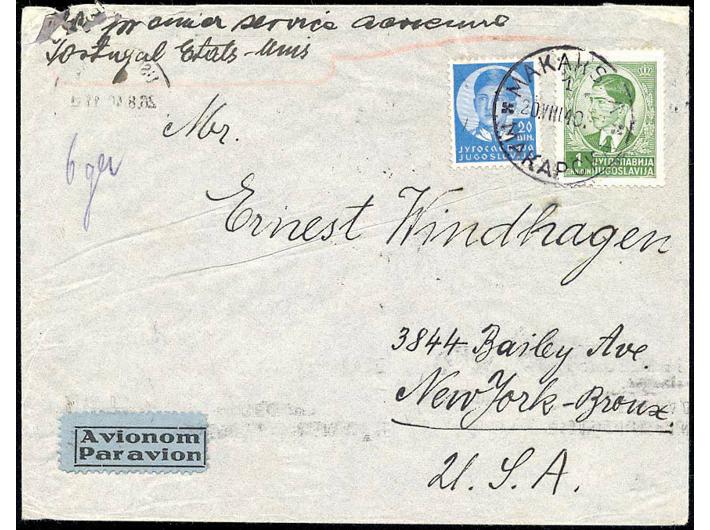 premier service aerienne
Portugal Etats-Unis
20.VIII 40.
МАКАР
6 gr
Mr.
20
DIN.
ЈУГОСЛАВИЈА
JUGOSLAVIJA
1
ЈУГОСЛАВИЈА
JUGOSLAVIJA
Ernest Windhagen
3844 Bailey Ave.
New York-Bronx
U. S. A.
Avionom
Par avion